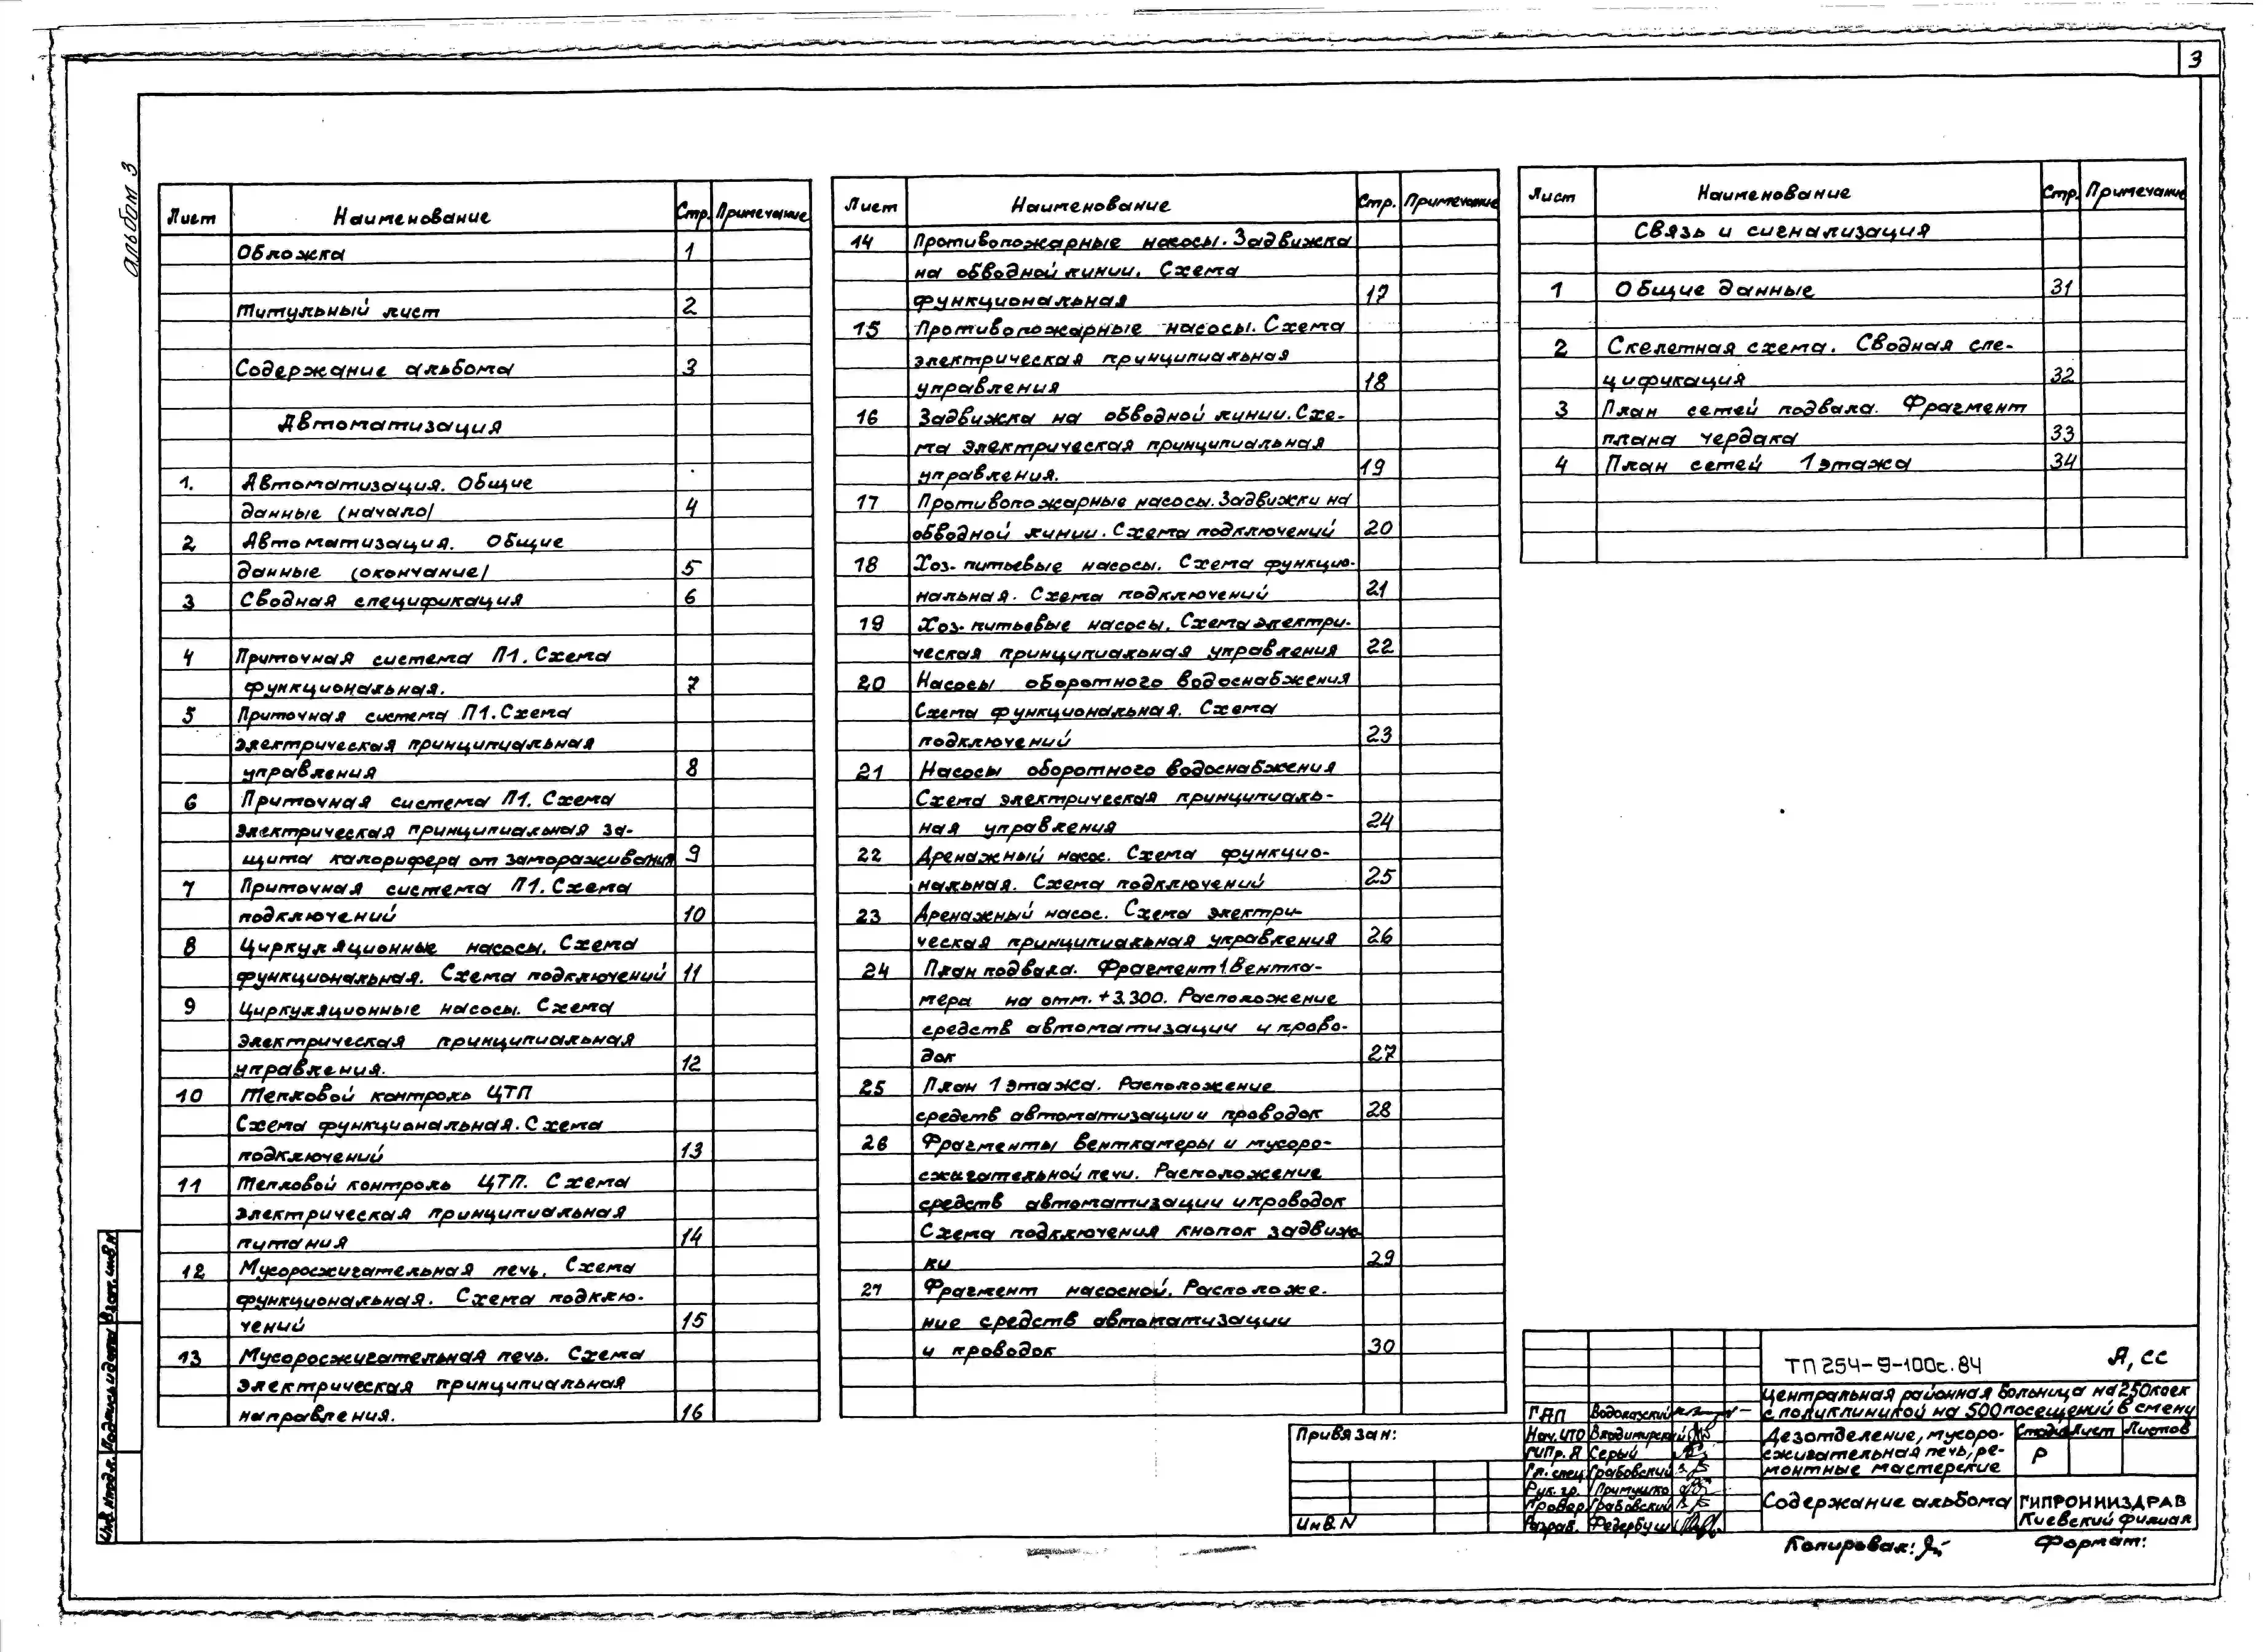 3
Альбом 3
Лист Наименование Стр. Примечание
Обложка 1
Титульный лист 2
Содержание альбома 3
Автоматизация
1. Автоматизация. Общие
данные (начало) 4
2 Автоматизация. Общие
данные (окончание) 5
3 Сводная спецификация 6
4 Приточная система П1. Схема
функциональная. 7
5 Приточная система П1. Схема
электрическая принципиальная
управления 8
6 Приточная система П1. Схема
электрическая принципиальная за-
щита калорифера от замораживания 9
7 Приточная система П1. Схема
подключений 10
8 Циркуляционные насосы. Схема
функциональная. Схема подключений 11
9 Циркуляционные насосы. Схема
электрическая принципиальная
управления. 12
10 Тепловой контроль ЦТП
Схема функциональная. Схема
подключений 13
11 Тепловой контроль ЦТП. Схема
электрическая принципиальная
питания 14
12 Мусоросжигательная печь. Схема
функциональная. Схема подклю-
чений 15
13 Мусоросжигательная печь. Схема
электрическая принципиальная
направления. 16
Лист Наименование Стр. Примечание
14 Противопожарные насосы. Задвижка
на обводной линии. Схема
функциональная 17
15 Противопожарные насосы. Схема
электрическая принципиальная
управления 18
16 Задвижка на обводной линии. Схе-
ма электрическая принципиальная
управления. 19
17 Противопожарные насосы. Задвижки на
обводной линии. Схема подключений 20
18 Хоз-питьевые насосы. Схема функцио-
нальная. Схема подключений 21
19 Хоз-питьевые насосы. Схема электри-
ческая принципиальная управления 22
20 Насосы оборотного водоснабжения
Схема функциональная. Схема
подключений 23
21 Насосы оборотного водоснабжения
Схема электрическая принципиаль-
ная управления 24
22 Дренажный насос. Схема функцио-
нальная. Схема подключений 25
23 Дренажный насос. Схема электри-
ческая принципиальная управления 26
24 План подвала. Фрагмент 1 Вентка-
мера на отм. +3.300. Расположение
средств автоматизации и прово-
док 27
25 План 1 этажа. Расположение
средств автоматизации и проводок 28
26 Фрагменты венткамеры и мусоро-
сжигательной печи. Расположение
средств автоматизации и проводок
Схема подключения кнопок задвиж-
ки 29
27 Фрагмент насосной. Расположе-
ние средств автоматизации
и проводок 30
Лист Наименование Стр. Примечание
Связь и сигнализация
1 Общие данные 31
2 Скелетная схема. Сводная спе-
цификация 32
3 План сетей подвала. Фрагмент
плана чердака 33
4 План сетей 1 этажа 34
Привязан:
Инв. N
ТП 254-9-100с.84 А, СС
Центральная районная больница на 250 коек
с поликлиникой на 500 посещений в смену
ГАП
Нач. ИТО Владимирский
ГИПр. А Серый
Гл. спец Грабовский
Рук. гр. Примушко
Провер Грабовский
Разраб. Федербуш
Дезотделение, мусоро-
сжигательная печь, ре-
монтные мастерские
Стадия Лист Листов
Р
Содержание альбома
ГИПРОНИИЗДРАВ
Киевский филиал
Копировал:
Формат:
Инв. N подл. Подпись и дата Взам. инв. N